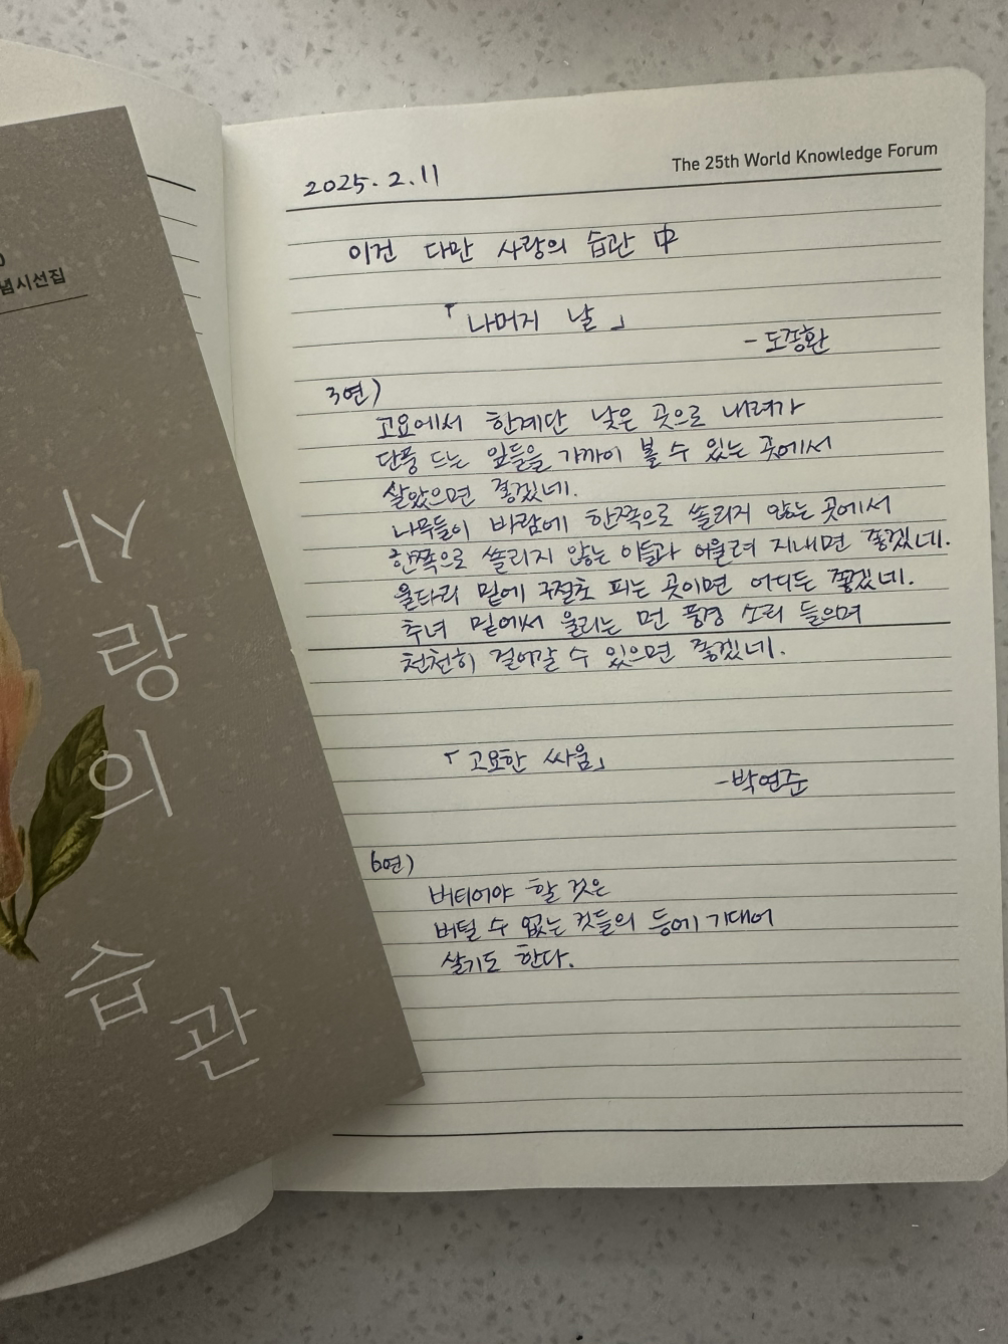 념시선집
사랑의 습관
The 25th World Knowledge Forum
2025. 2. 11
이건 다만 사랑의 습관 中
「나머지 날」
- 도종환
3연)
고요에서 한계단 낮은 곳으로 내려가
단풍 드는 잎들을 가까이 볼 수 있는 곳에서
살았으면 좋겠네.
나무들이 바람에 한쪽으로 쏠리지 않는 곳에서
한쪽으로 쏠리지 않는 이들과 어울려 지내면 좋겠네.
울타리 밑에 구절초 피는 곳이면 어디든 좋겠네.
추녀 밑에서 울리는 먼 풍경 소리 들으며
천천히 걸어갈 수 있으면 좋겠네.
「고요한 싸움」
- 박연준
6연)
버티어야 할 것은
버틸 수 없는 것들의 등에 기대어
살기도 한다.